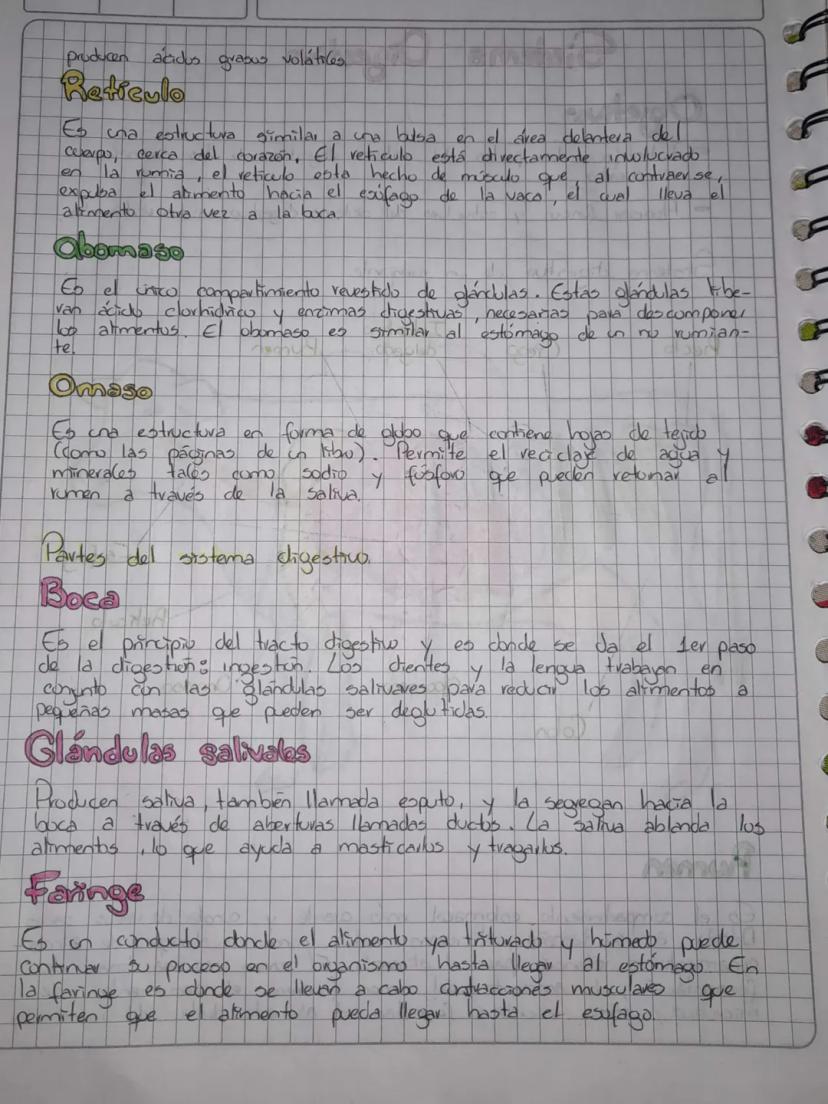 producen ácidos grasos volátiles
Retículo
Es una estructura similar a una bolsa en el área delantera del
cuerpo, cerca del corazón. El retículo está directamente involucrado
en la rumia, el retículo esta hecho de músculo que, al contraerse,
expulsa el alimento hacia el esófago de la vaca, el cual lleva el
alimento otra vez a la boca.
Obomaso
Es el único compartimiento revestido de glándulas. Estas glándulas libe-
ran ácido clorhídrico y enzimas digestivas, necesarias para descomponer
los alimentos. El obomaso es similar al estómago de un no rumian-
te.
Omaso
Es una estructura en forma de globo que contiene hojas de tejido
(como las páginas de un libro). Permite el reciclaje de agua y
minerales tales como sodio y fósforo que pueden retornar al
rumen a través de la saliva.
Partes del sistema digestivo.
Boca
Es el principio del tracto digestivo y es donde se da el 1er paso
de la digestión: ingestión. Los dientes y la lengua trabajan en
conjunto con las glándulas salivares para reducir los alimentos a
pequeñas masas que pueden ser deglutidas.
Glándulas salivales
Producen saliva, también llamada esputo, y la segregan hacia la
boca a través de aberturas llamadas ductos. La saliva ablanda los
alimentos, lo que ayuda a masticarlos y tragarlos.
Faringe
Es un conducto donde el alimento ya triturado y húmedo puede
continuar su proceso en el organismo hasta llegar al estómago. En
la faringe es donde se lleven a cabo contracciones musculares que
permiten que el alimento pueda llegar hasta el esófago.